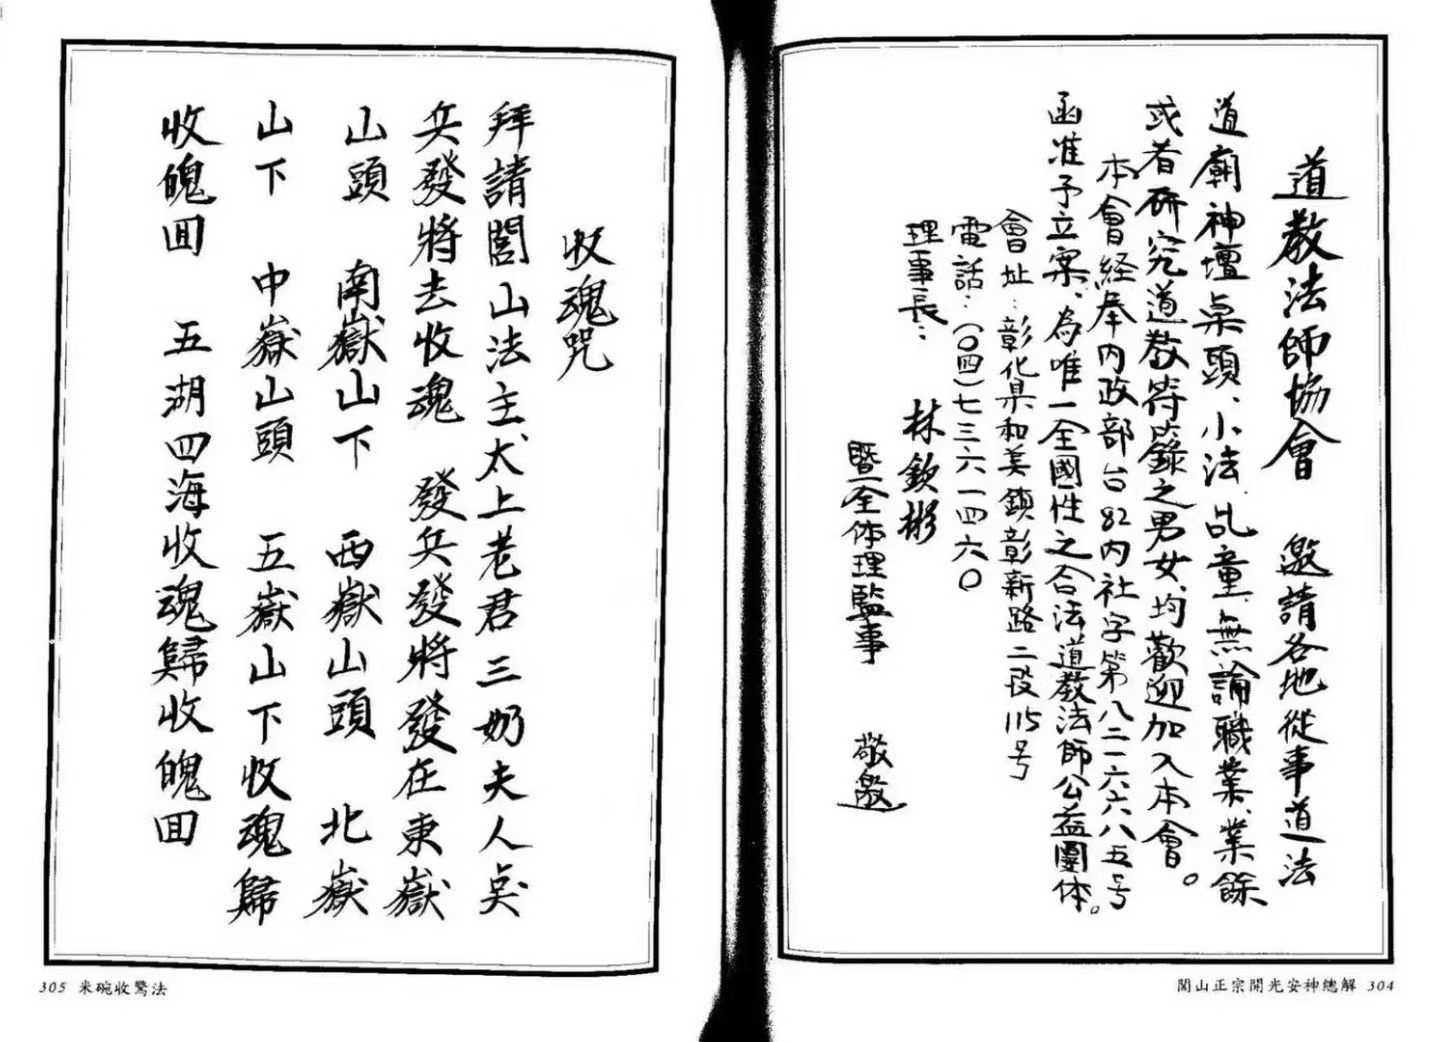 道教法師協會　邀請各地從事道法
道廟神壇桌頭、小法、乩童、無論職業、業餘
或者研究道教符籙之男女、均歡迎加入本會。
本會経奉內政部台82內社字第八二一六六八五号
函准予立案、為唯一全國性之合法道教法師公益團体。
會址：彰化県和美鎮彰新路二段115号
電話：（〇四）七三六一四六〇
理事長：林欽彬
暨全体理監事　敬邀
閭山正宗開光安神總解 304
收魂咒
拜請閭山法主太上老君三奶夫人
兵發將去收魂　發兵發將發在東嶽
山頭　南嶽山下　西嶽山頭　北嶽
山下　中嶽山頭　五嶽山下收魂歸
收魄回　五湖四海收魂歸收魄回
305 米碗收驚法